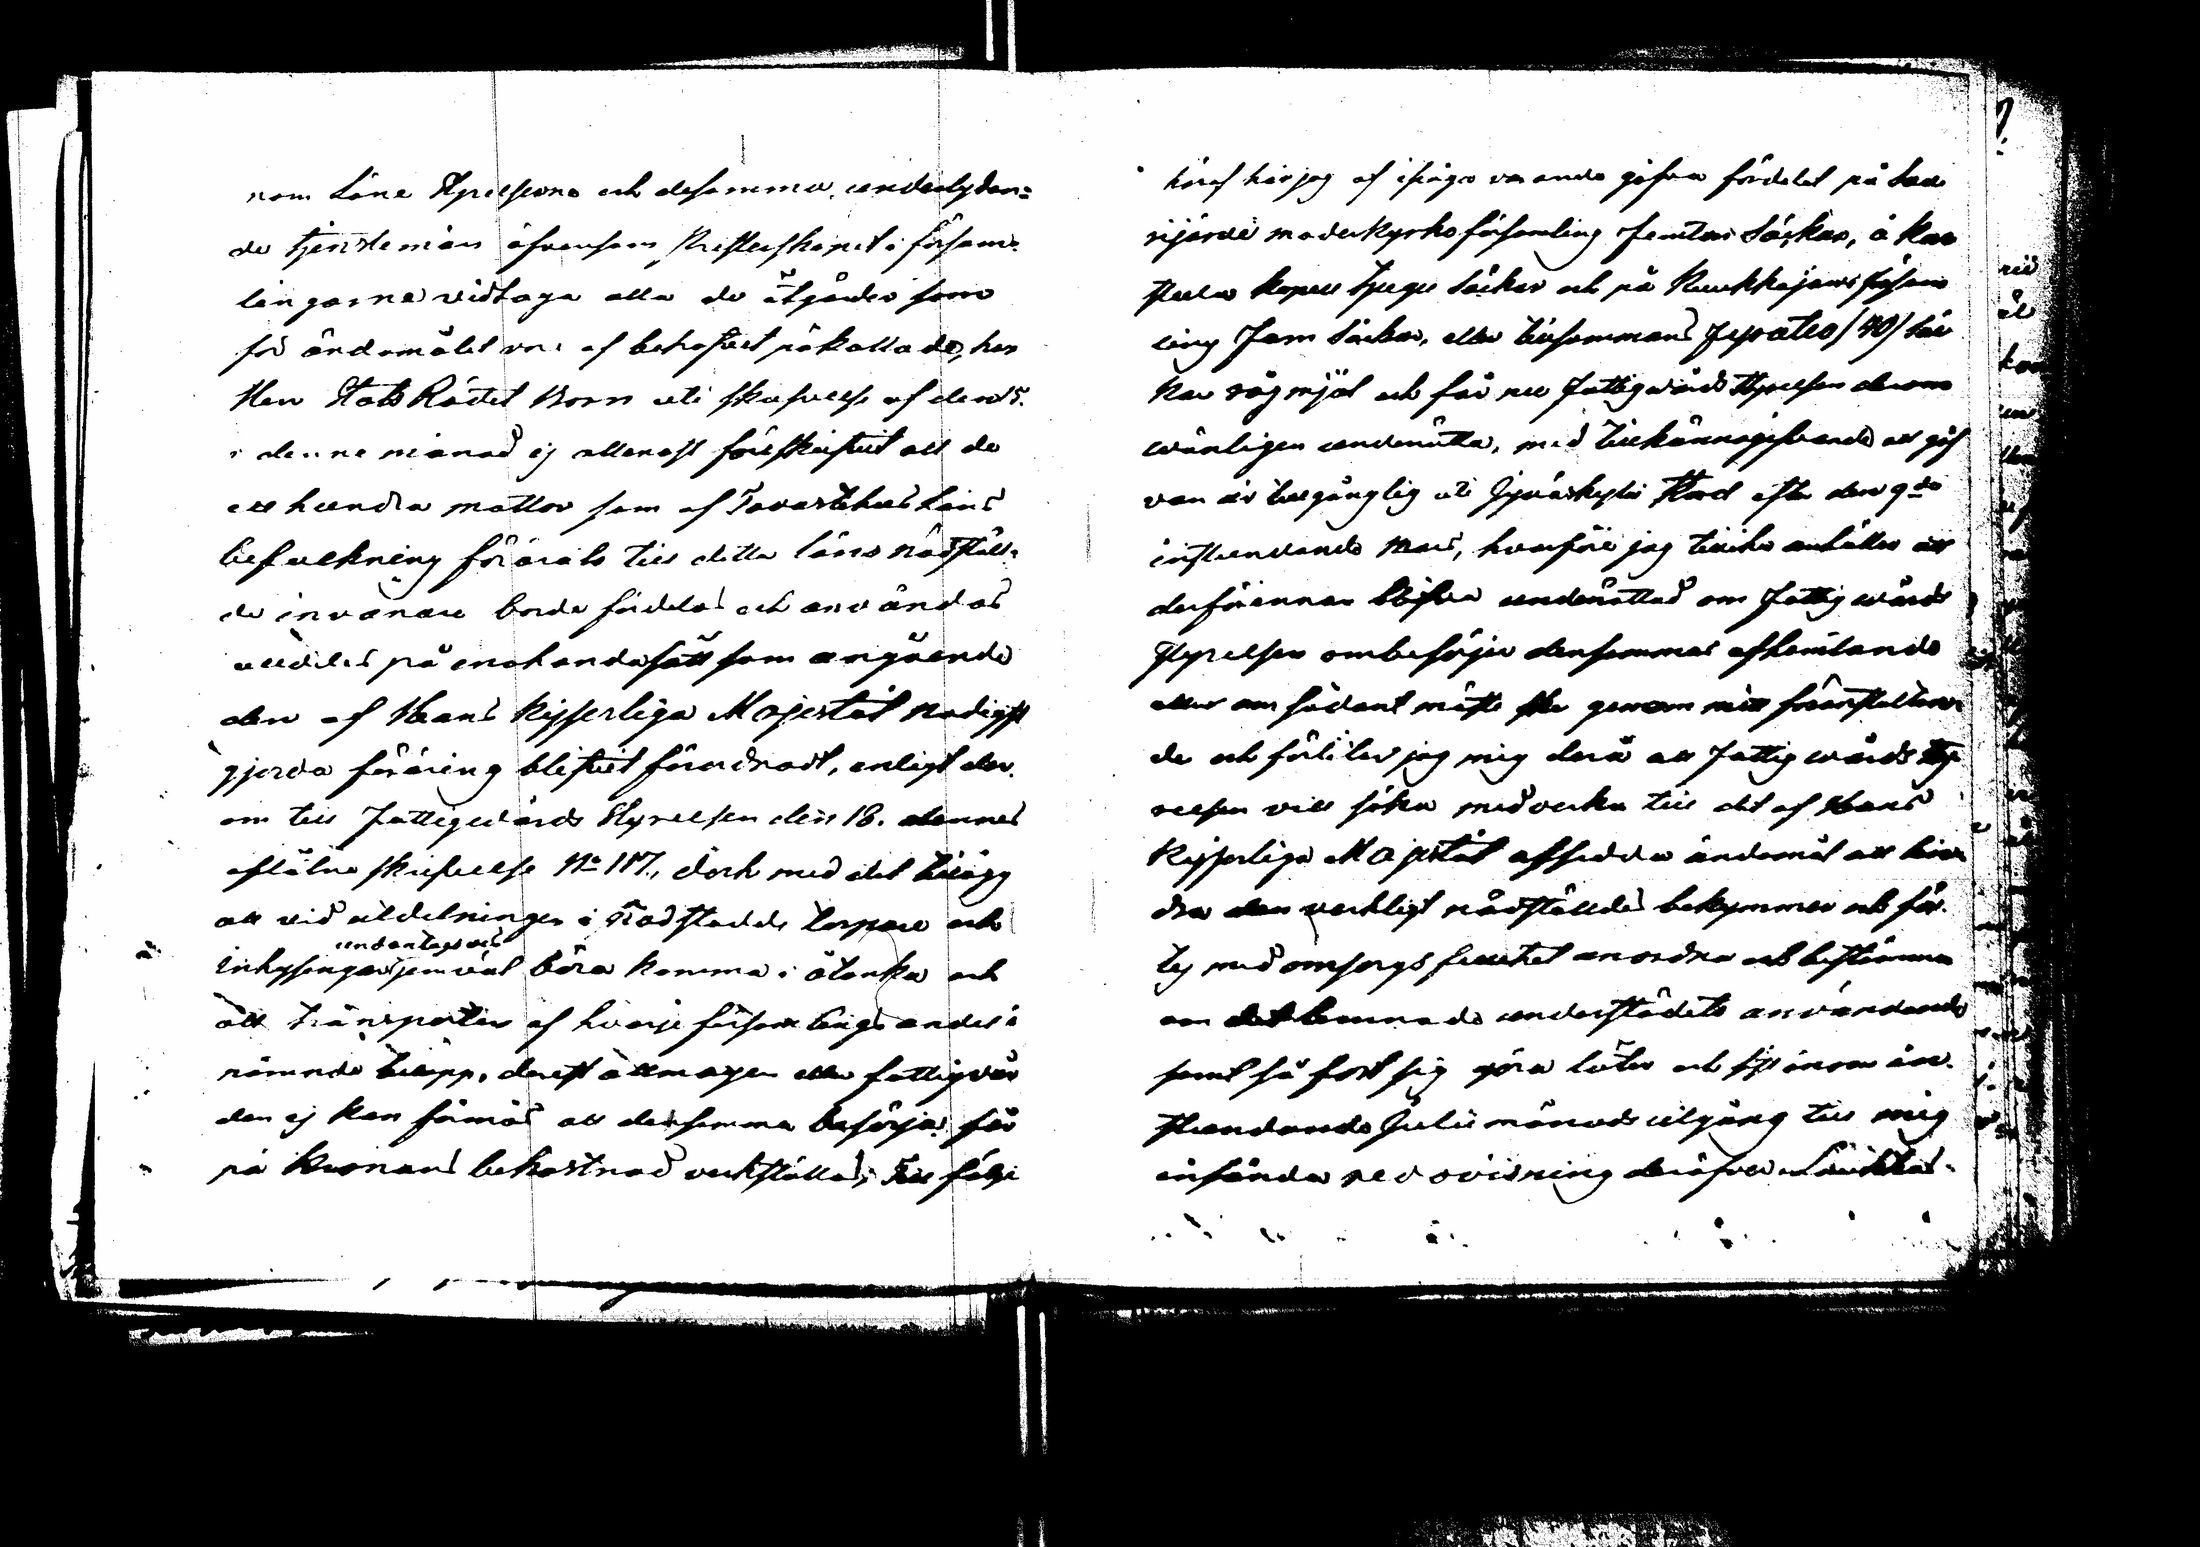 nom Läne Styrelserne och desamma underlydan=
de tjenstemän äfvensom Presterskapet i försam-
lingarne vidtaga alla de åtgärder som
för ändamålet vore af behofvet påkallade, har
Herr Stats Rådet Born uti skrifvelse af den 15.
i denne månad ej allenast föreskrifvit att de
ett hundra mattor som af Tavastehus Läns
befolkning förärats till detta läns nödställ-
de invånare borde fördelas och användas
utdelas på enahanda sätt som angående
den af Hans Kejserliga Majestät Nådigst
gjorda föräring blifvit förordnadt, enligt der-
om till Fattigvårds Styrelsen den 18. dennes
aflåtne skrifvelse No 117., dock med det tillägg
att vid utdelningen i nödstadde torpare och
undantagsvis
inhysingar jemväl böra komma i åtanka och
att transporten af hvarje församlings andel i
nämnde tillväg, derest allmogen eller fattigvår
den ej kan förmås att densamma besörja, får
på Kronans bekostnad verkställas; Till följe
häraf har jag af ifråga varande gåfva fördelat på Saa
rijärvi moderkyrkoförsamling femton Säckar, å Kar
stula kapell tjugu Säckar och på Pihkajarvi försam
ling fem Säckar, eller tillsammans fyratio /40/ säc
kar rågmjöl och får nu Fattigvårds Styrelsen derom
vänligen underrätta, med tillkännagifvande att gåf
van är tillgänglig uti Jyväskylä Stad efter den 9de
instundande Maj, hvarföre jag tillika anhåller att
derförinnan blifva underrättad om Fattigvårds
Styrelsen ombesörjer densammas afhemtande
eller om sådant måste ske genom mitt föranstaltan-
de och förlitar jag mig derå att Fattigvårds Sty-
relsen vill söka medverka till det af Hans
Kejserliga Majestät afsedda ändamål att lin
dra den verkligt nödställdes bekymmer och för-
ty med omsorgsfullhet anordna och bestämma
om det lemnade understödets användande
samt så fort sig göra låter och sist inom in-
stundande Julii månads utgång till mig
insända redovisning deröfver